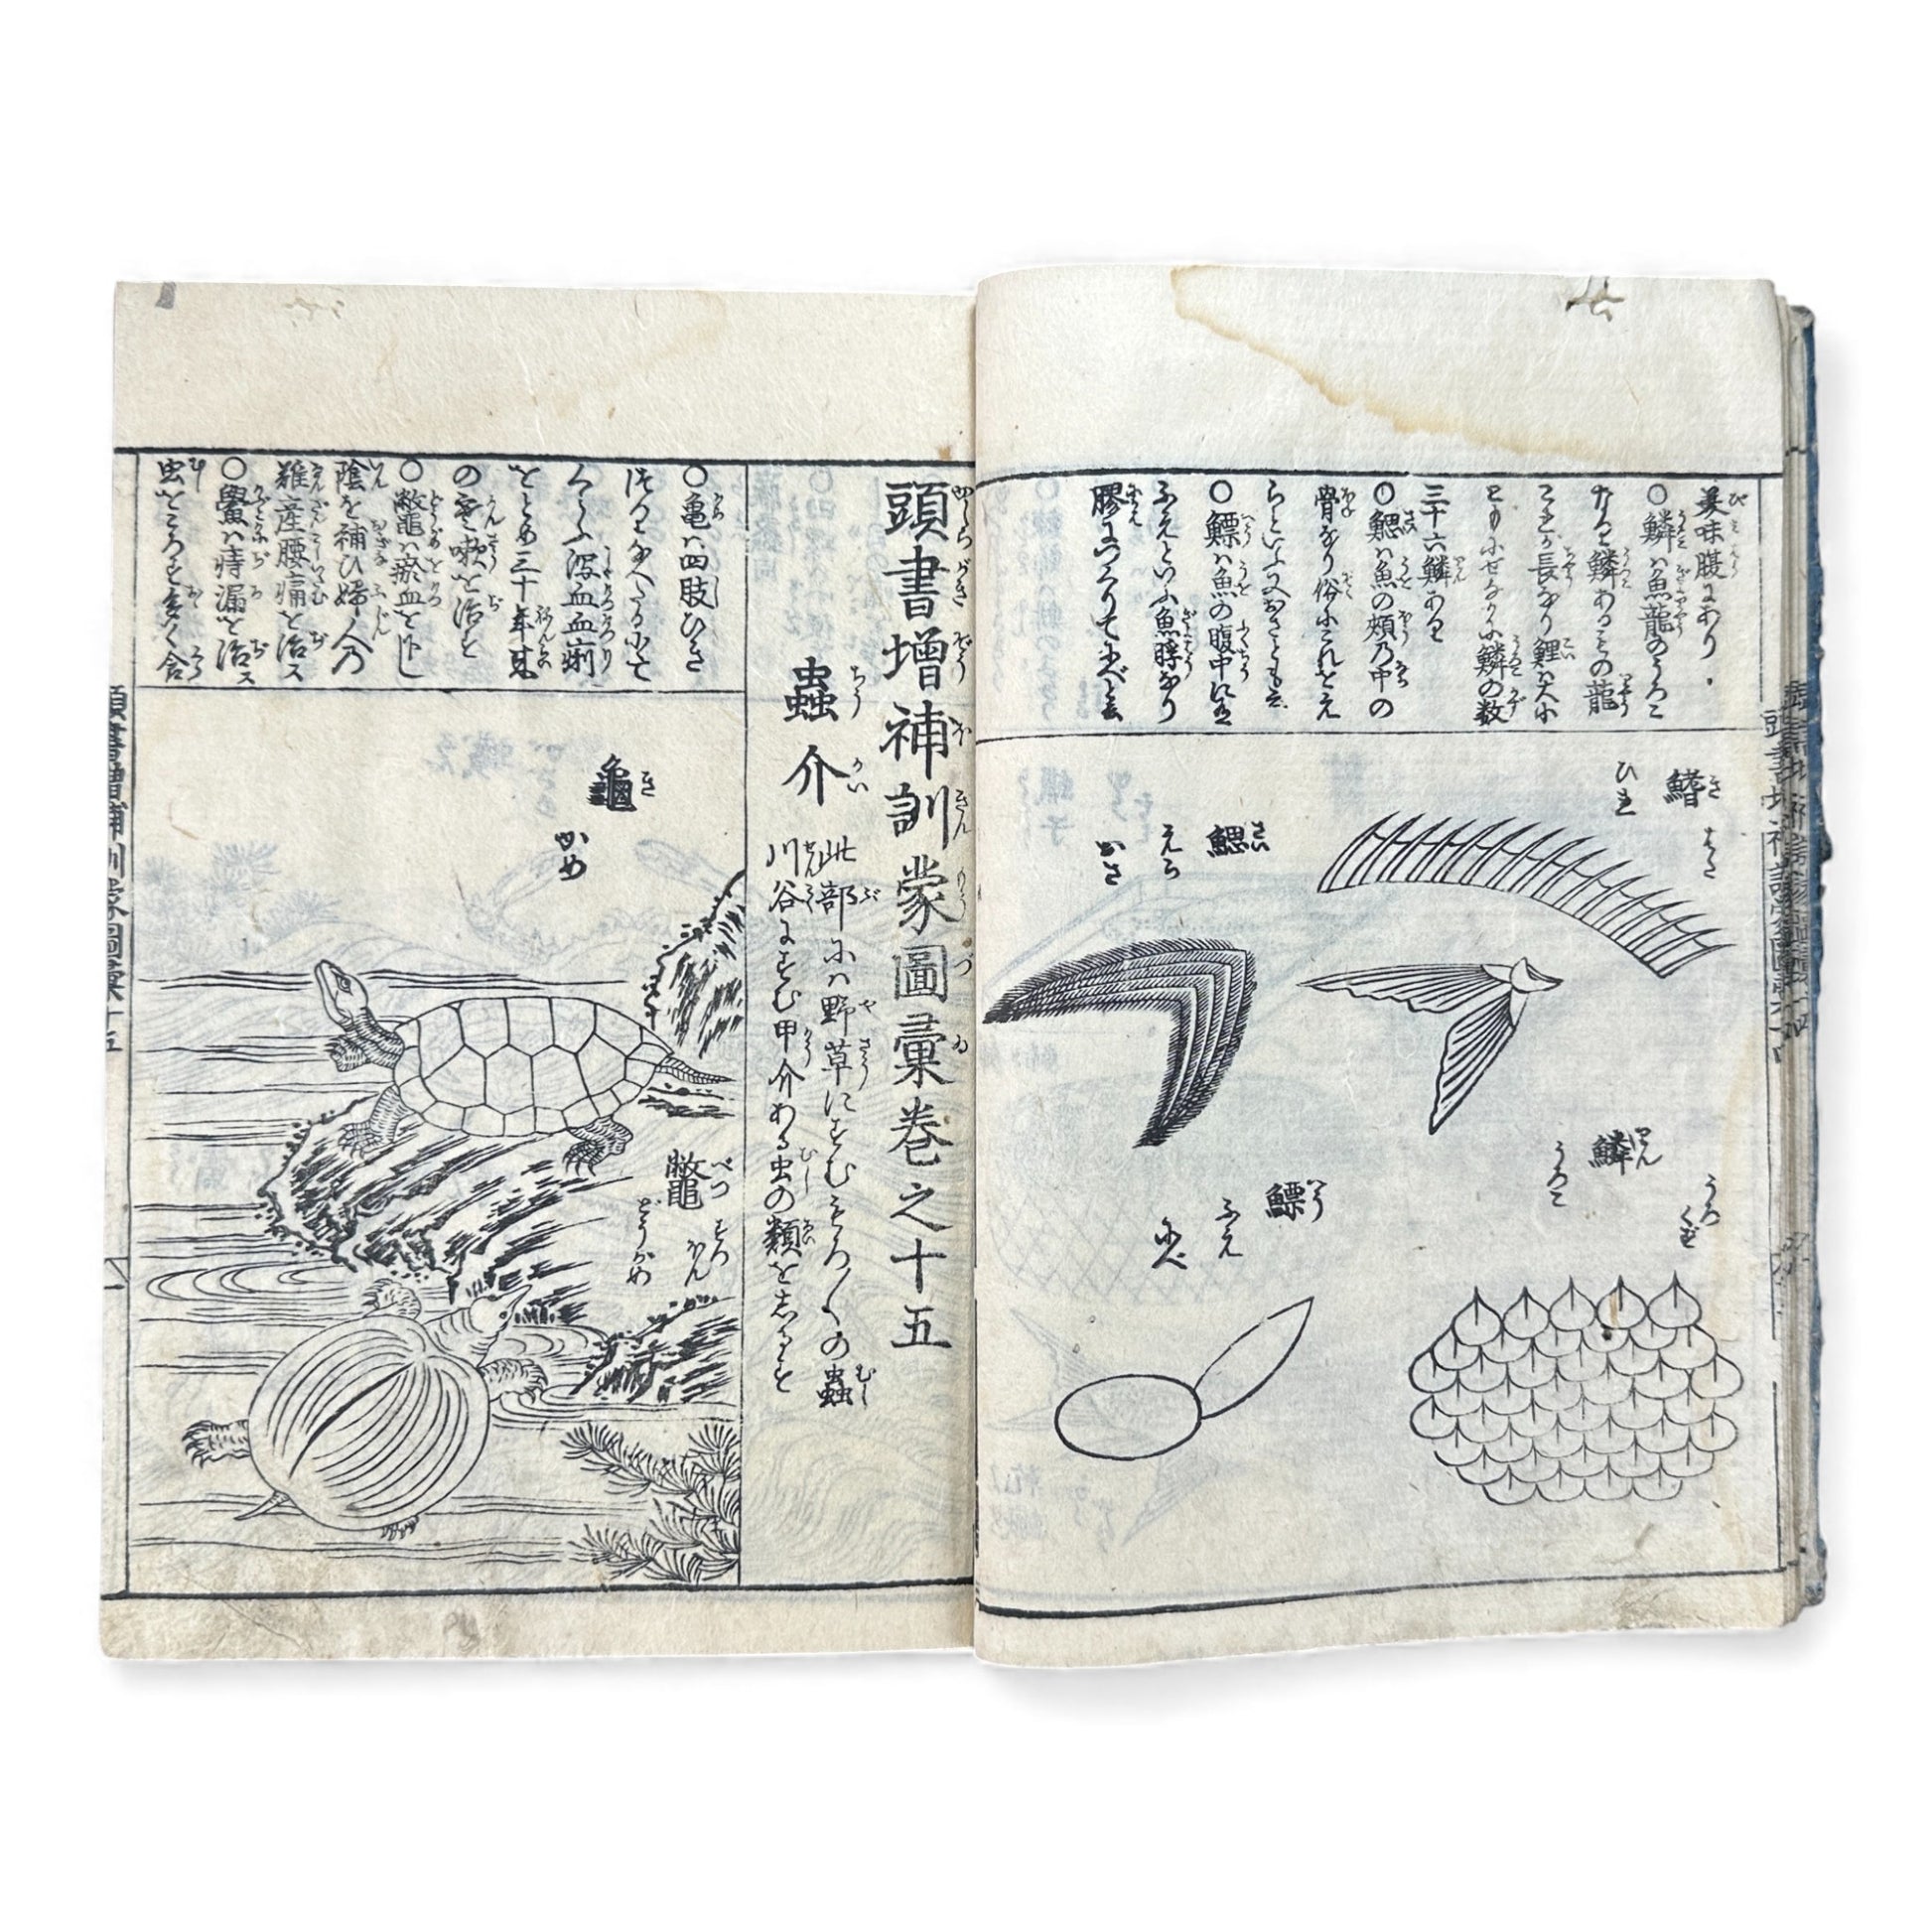 美味腹にあり．
〇鱗ハ魚龍のうろこ
なり鱗あるものの龍
これが長なり鯉ハ大小
ともにせなかに鱗の数
三十六鱗あり
〇鰓ハ魚の頬乃中の
骨なり俗にこれをえ
らといふ又あぎとも云
〇鰾ハ魚の腹中に在
ふえといふ魚脬なり
膠につくりてにべと云
鰭 き
はた
ひれ
鰓 さい
えら
かさ
鱗 りん
うろこ
うろくず
鰾 へう
ふえ
にべ
頭書増補訓蒙圖彙巻之十五
蟲介 ちうかい
此部にハ野草にすむもろ〳〵の蟲
川谷にすむ甲介ある虫の類をしるす
〇亀ハ四肢ひき
くらふ瀉血血痢
をとめ三十年
の寒嗽を治を
〇鼈ハ瘀血を下し
陰を補ひ婦人乃
難産腰痛を治ス
〇鱟ハ痔漏を治ス
龜 き
かめ
鼈 べつ
すつほん
どうかめ
頭書増補訓蒙圖彙十五